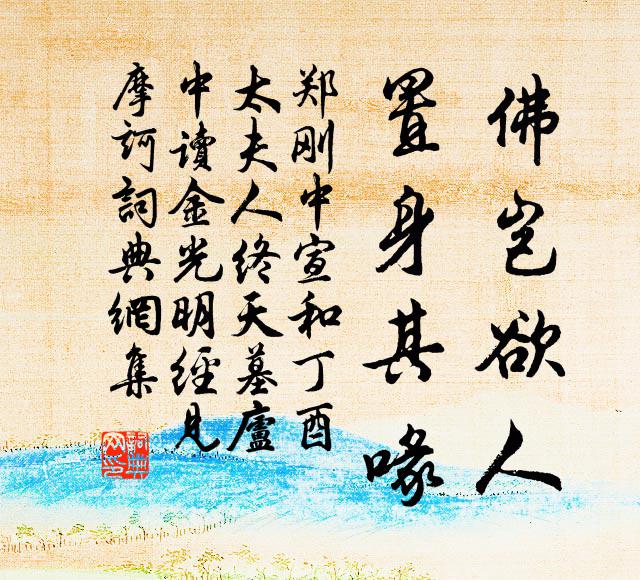 佛岂欲人
置身其喙
郑刚中宣和丁酉
太夫人终天墓廬
中读金光明经见
摩訶詞典網集